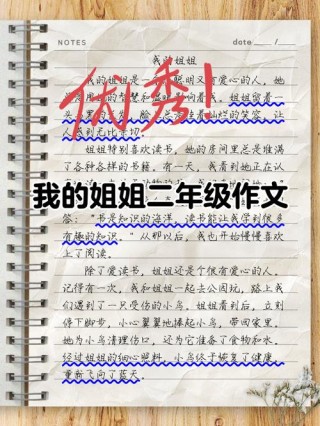 NOTES
date / /
我的姐姐
我的姐姐是一个聪明又有爱心的人，她
响着我。姐姐留着一
头 的笑容，让
人感到无比亲切。
姐姐特别喜欢读书，她的房间里总是堆满
了各种各样的书籍。有一天，我看到她正在认
优秀！
我的姐姐二年级作文
答：“书是知识的海洋，读书能让我学到很多
有趣的知识。”从那以后，我也开始慢慢喜欢
上了阅读。
除了爱读书，姐姐还是个很有爱心的人。
记得有一次，我和姐姐一起去公园玩，路上我
们遇到了一只受伤的小鸟。姐姐看到后，立刻
停下脚步，小心翼翼地捧起小鸟，带回家里。
她为小鸟清理伤口，还为它准备了食物和水。
经过姐姐的细心照料，小鸟终于恢复了健康，
重新飞向了蓝天。